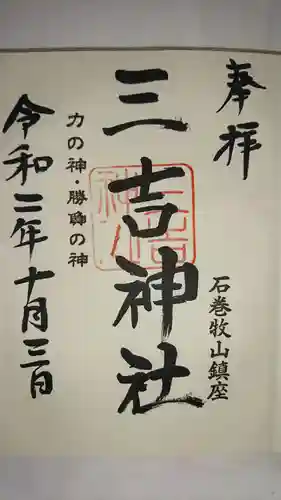 奉拝
石巻牧山鎮座
三吉神社
力の神・勝負の神
令和二年十月三日